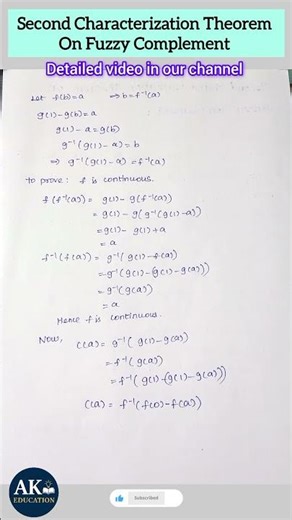 Second Characterization Theorem
On Fuzzy Complement
Detailed video in our channel
Let f(b)=a ⇒b=f⁻¹(a)
g(1)-g(b)=a
g(1)-a=g(b)
g⁻¹(g(1)-a)=b
⇒ g⁻¹(g(1)-a)=f⁻¹(a)
To prove: f is continuous.
f(f⁻¹(a)) = g(1)-g(f⁻¹(a))
= g(1)-g(g⁻¹(g(1)-a))
=g(1)-g(1)+a
= a
f⁻¹(f(a)) = g⁻¹(g(1)-f(a))
=g⁻¹(g(1)-(g(1)-g(a)))
=g⁻¹(g(a))
=a
Hence f is continuous.
Now,
C(a)= g⁻¹(g(1)-g(a))
=f⁻¹(g(a))
=f⁻¹(g(1)-(g(1)-g(a)))
C(a)= f⁻¹(f(0)-f(a))
AK
EDUCATION
Subscribed